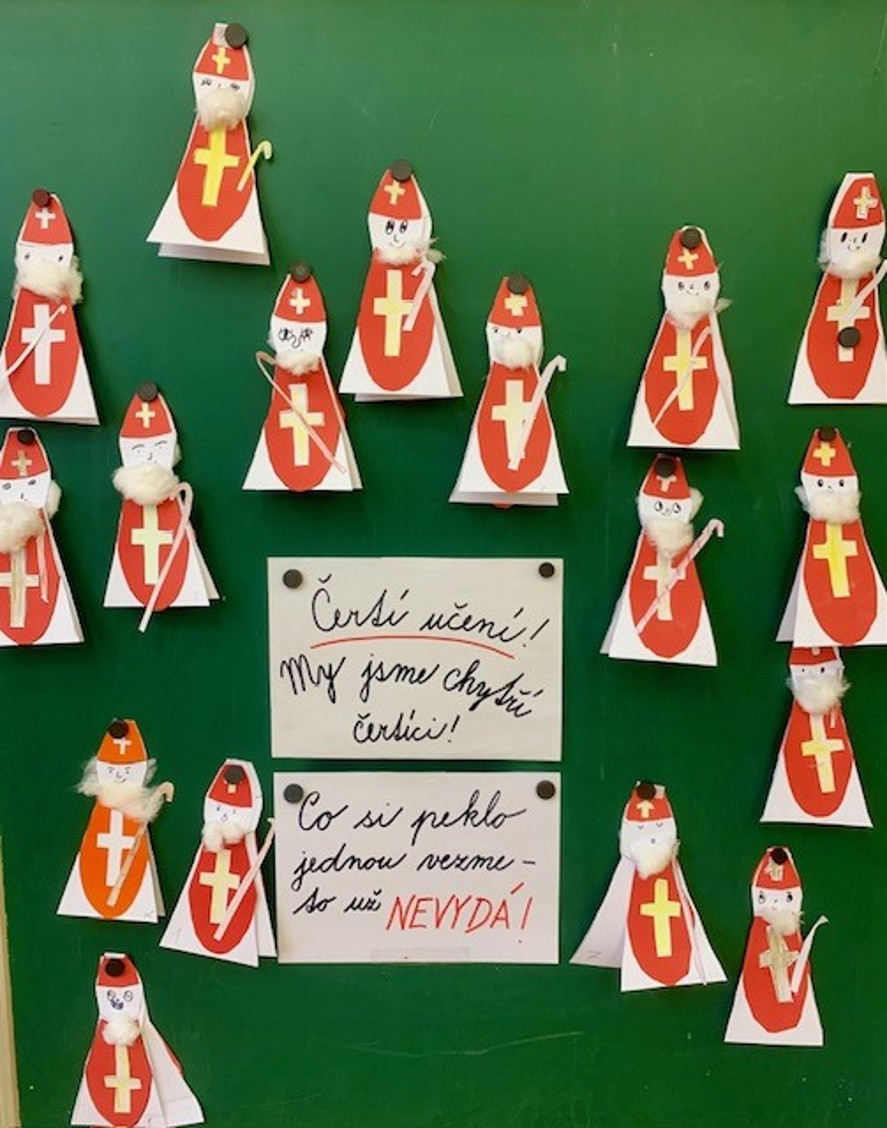 Čertí učení!
My jsme chytří
čertíci!
Co si peklo
jednou vezme –
to už NEVYDÁ!